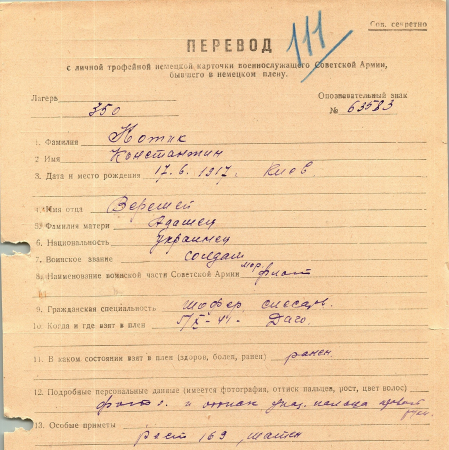 Сов. секретно
111
ПЕРЕВОД
с личной трофейной немецкой карточки военнослужащего Советской Армии,
бывшего в немецком плену.
Лагерь 350 Опознавательный знак
№ 63583
1. Фамилия Котик
2 Имя Константин
3. Дата и место рождения 17.6.1917. Киов
4. Имя отца Веремей
5. Фамилия матери Адамец
6. Национальность Украинец
7. Воинское звание солдат
8. Наименование воинской части Советской Армии мор флот
9. Гражданская специальность Шофер, слесарь
10. Когда и где взят в плен 5/X-41. Даго.
11. В каком состоянии взят в плен (здоров, болен, ранен) ранен
12. Подробные персональные данные (имеется фотография, оттиск пальцев, рост, цвет волос)
и оттиск указ. пальца правой руки.
13. Особые приметы
рост 169, шатен